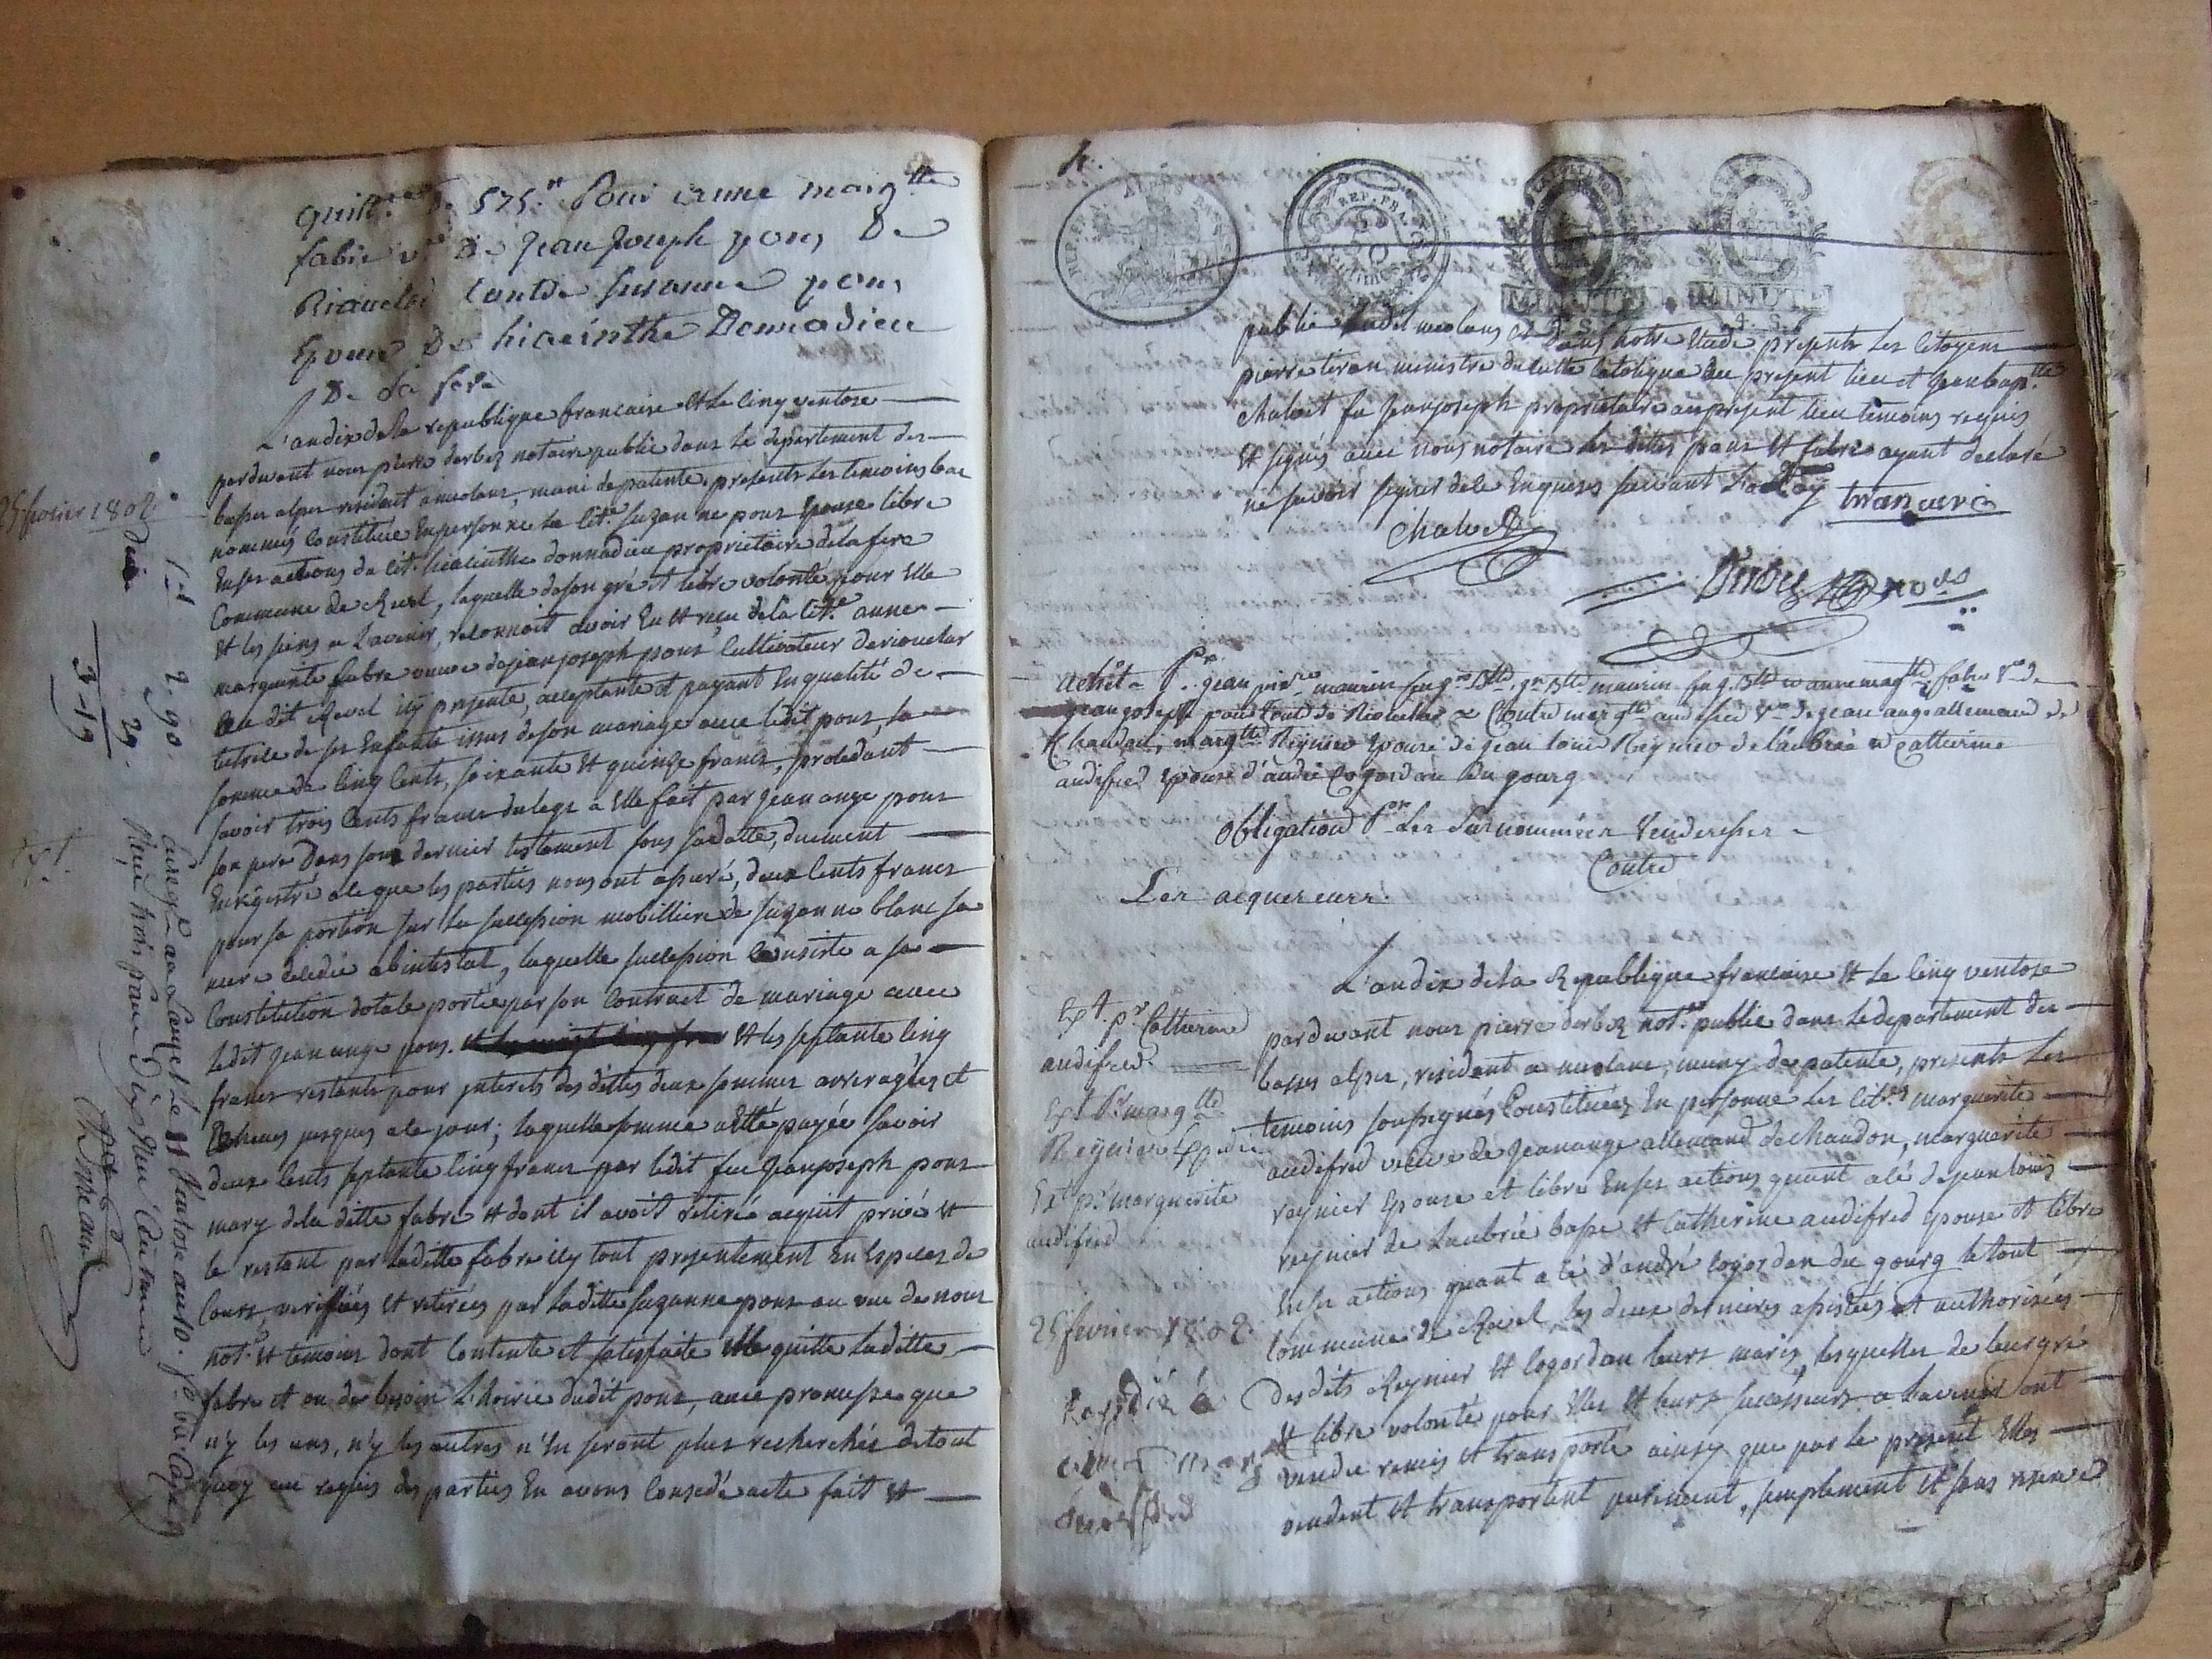 Quitt.ce de 575.tt Pour anne marg.tte
fabre v.ve De Jean Joseph pons De
Riouclar Contre Susanne pons
Epouse De hiacinthe Donnadieu
De la fere
L'an dix de la republique francaise et le cinq ventose
pardevant nous pierre derbez notaire public dans le departement des
basses alpes residant a meolans, muni de patente, presents les temoins bas
nommés constituée En personne la cit.e Suzanne pons Epouse libre
En ses actions du cit. hiacinthe donnadieu proprietaire de la fere
Commune de Revel, laquelle de son gré et libre volonté pour Elle
et les siens a L'avenir, reconnoit avoir Eu et reçu de la cit.e anne
marguerite fabre veuve de jean joseph pons cultivateur de riouclar
au dit Revel icy presente, acceptante et payant En qualité de
tutrice de ses Enfants issus de son mariage avec ledit pons, la
somme de Cinq Cents, soixante et quinze francs, procedant
savoir trois Cents francs du legs a Elle fait par jean ange pons
son pere Dans son dernier testament sous sa datte, duement
Enregistré a ce que les parties nous ont assuré, deux Cents francs
pour sa portion sur la succession mobilliere de suzanne blanc sa
mere decedée abintestat, laquelle succession Consiste a sa
Constitution dotale portée par son Contract de mariage avec
ledit jean ange pons. et les septante cinq
francs restants pour interets des dittes deux sommes arreragées et
Echeues jusques a ce jour; laquelle somme a Eté payée savoir
deux Cents septante cinq francs par ledit feu jean joseph pons
mary de la ditte fabre et dont il avoit retiré acquit privé et
le restant par laditte fabre icy tout presentement En Especes de
Cours, veriffiées et retirées par laditte suzanne pons au vue de nous
not.e et temoins dont Contente et satisfaite Elle quitte laditte
fabre et ou de besoin L'hoirie dudit pons, avec promesse que
n'y les uns, n'y les autres n'En seront plus recherchés de tout
quoy au requis des parties En avons Concedé acte fait et
25 fevrier 1802
2 90
29
3-19
Ext
public audit meolans et Dans notre Etude, presents les Citoyens
pierre tiran ministre du culte Catolique du present lieu et jean bap.tte
chabot fu jean joseph proprietaire au present lieu temoins requis
et signés avec nous notaire les dittes pons et fabre ayant declaré
ne savoir signer de ce Enquises suivant La Loy
Chabot
Derbez no.re
REP. FRA.
MINUTE
MINUTE
achet - P.r jean pierre maurin feu g.n B.tte, g.n B.tte maurin feu g. B.tte et anne marg.tte fabre V.ve de
jean joseph pons tous de Riouclar Contre marg.tte audifred V.ve de jean ange allemand de
Chaudon, marg.tte Reynier Epouse de jean louis Reynier de Laubrée et Catherine
audifred Epouse d'andré Cogordan Du gourg
Obligation P.r Les Surnommées Venderesses
Contre
Les acquereurs.
L'an dix de la Republique francaise et le cinq ventose
pardevant nous pierre derbez not.re public dans le departement des
basses alpes, residant a meolans, muny de patente, presents les
temoins soussignés Constituées En personne les cit.es marguerite
audifred veuve de jean ange allemand de chaudon, marguerite
reynier Epouse et libre En ses actions quant a ce de jean louis
reynier de Laubrée basse et Catherine audifred Epouse et libre
En ses actions quant a ce d'andré cogordan du gourg le tout
Commune de Revel, les deux dernieres assistées et authorisées
desdits Reynier et Cogordan leurs maris, lesquelles de leur gré
et libre volonté pour Elles et leurs successeurs a L'avenir ont
vendu remis et transporté ainsy que par le present Elles
vendent et transportent purement, simplement et sans reserve
Ext. p.r Catherine
audifred.
Ext P.r marg.tte
Reynier
Ext p.r marguerite
audifred
25 fevrier 1802.
Expedié à
audiffred